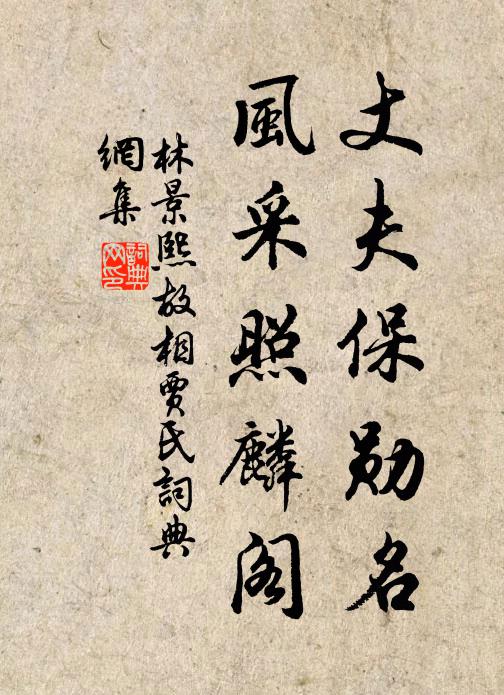 丈夫保勋名
風采照麟阁
林景熙故相賈氏詞典
網集
詞典
网印